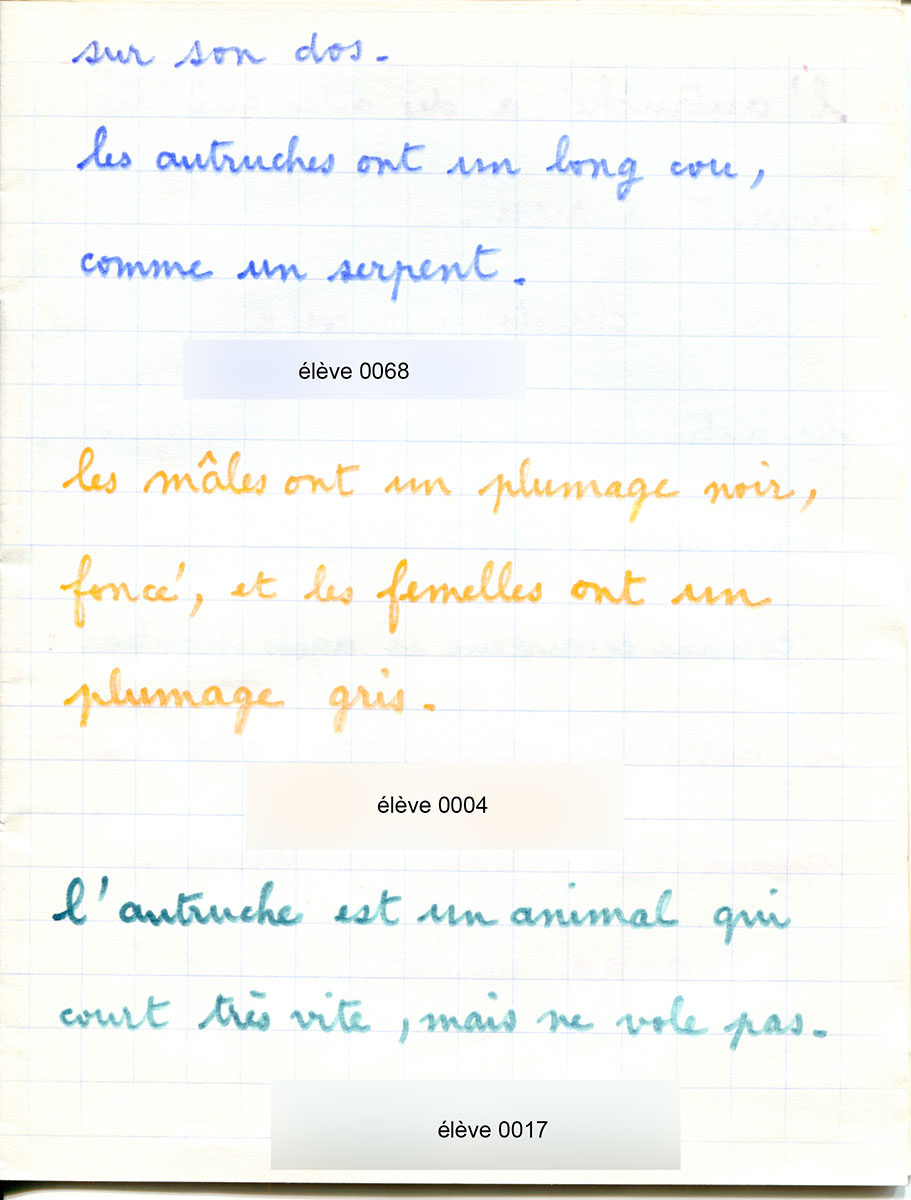 sur son dos.
les autruches ont un long cou,
comme un serpent.
élève 0068
les mâles ont un plumage noir,
foncé, et les femelles ont un
plumage gris.
élève 0004
l'autruche est un animal qui
court très vite, mais ne vole pas.
élève 0017